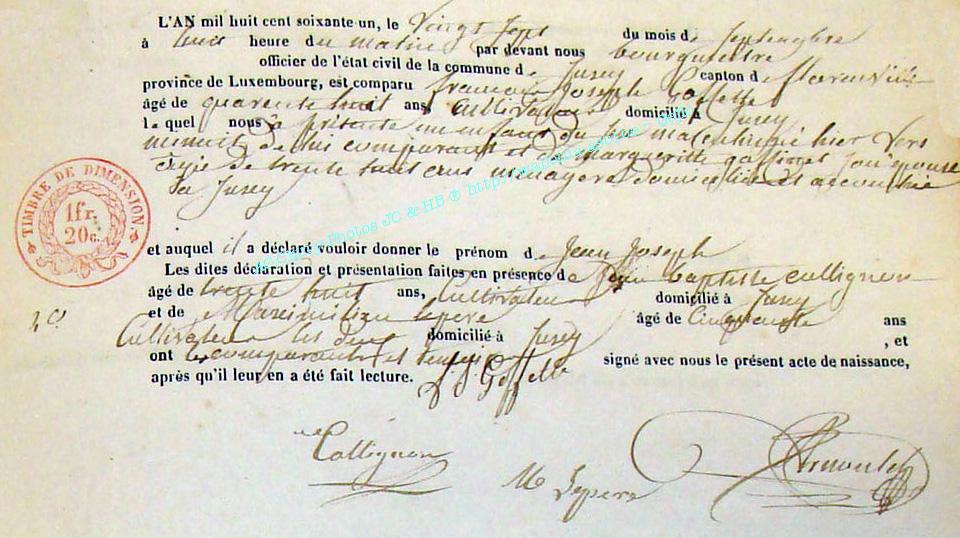 L'AN mil huit cent soixante un, le vingt sept du mois de septembre
à huit heure du matin par devant nous bourguestre
officier de l'état civil de la commune de Jusey canton de florenville
province de Luxembourg, est comparu francois Joseph Goffette
âgé de quarente huit ans, Cultivateur domicilié à Jusey
lequel nous a présenté un enfant du sexe masculin né hier vers
minuit de lui comparant et de margueritte son épouse
agée de trente huit ans menagere domiciliée et accouchée
a Jusey
TIMBRE DE DIMENSION.
1fr.
20c.
et auquel il a déclaré vouloir donner le prénom de Jean Joseph
Les dites déclaration et présentation faites en présence de Jean baptiste collignon
âgé de trente huit ans, Cultivateur domicilié à Jusey
et de Maximilien lepere âgé de Cinquente ans
Cultivateur les deux domicilié à Jusey , et
ont les comparant et temoins signé avec nous le présent acte de naissance,
après qu'il leur en a été fait lecture. Goffette
Collignon
M Lepere